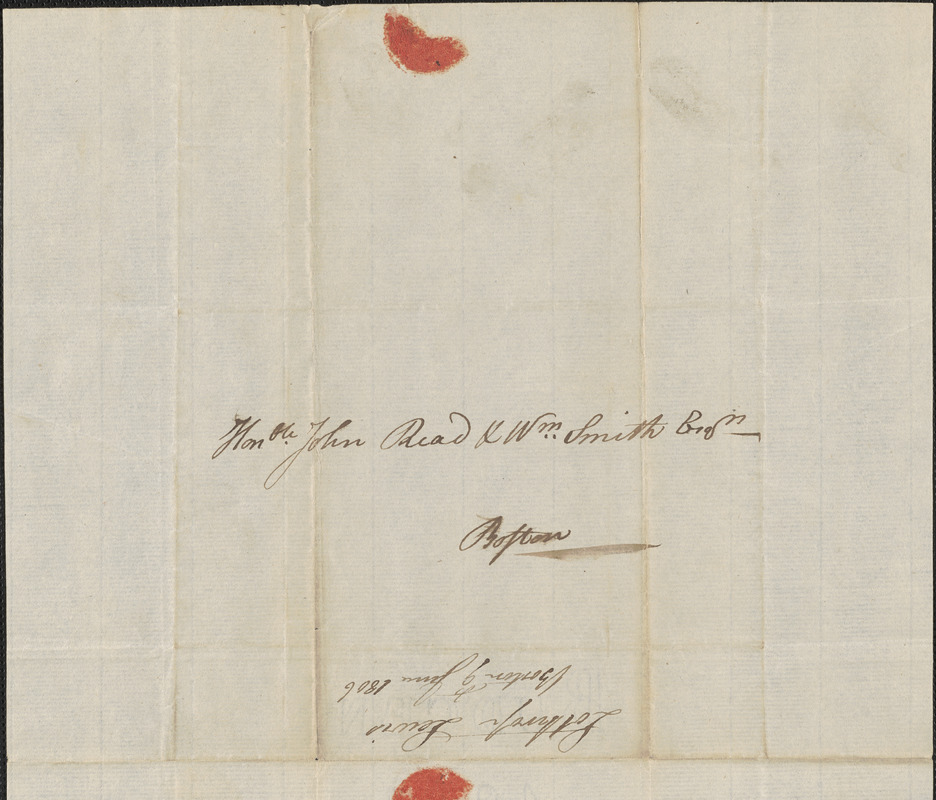 Honble John Read & Wm Smith Esqrs
Boston
Lothrop Lewis
Boston 9 June 1806